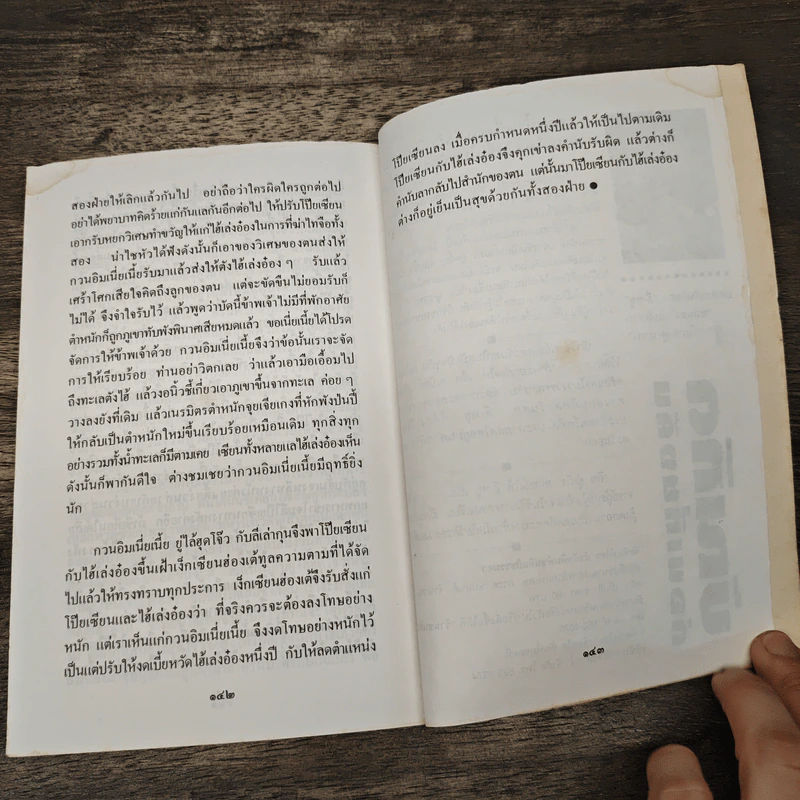 สองฝ่ายให้เลิกแล้วกันไป อย่าถือว่าใครผิดใครถูกต่อไป
อย่าได้พยาบาทคิดร้ายแก่กันแลกันอีกต่อไป ให้ปรับโป๊ยเซียน
เอากรับหยกวิเศษทำขวัญให้แก่ไฮ้เล่งอ๋องในการที่ฆ่าไทจือทั้ง
สอง น่าไชหัวได้ฟังดังนั้นก็เอาของวิเศษของตนส่งให้
กวนอิมเนี่ยเนี้ยรับมาแล้วส่งให้ตังไฮ้เล่งอ๋อง ๆ รับแล้ว
เศร้าโศกเสียใจคิดถึงลูกของตน แต่จะขัดขืนไม่ยอมรับก็
ไม่ได้ จึงจำใจรับไว้ แล้วพูดว่าบัดนี้ข้าพเจ้าไม่มีที่พักอาศัย
ตำหนักก็ถูกภูเขาทับพังพินาศเสียหมดแล้ว ขอเนี่ยเนี้ยได้โปรด
จัดการให้ข้าพเจ้าด้วย กวนอิมเนี่ยเนี้ยจึงว่าข้อนั้นเราจะจัด
การให้เรียบร้อย ท่านอย่าวิตกเลย ว่าแล้วเอามือเอื้อมไป
ถึงทะเลตังไฮ้ แล้วงอนิ้วชี้เกี่ยวเอาภูเขาขึ้นจากทะเล ค่อย ๆ
วางลงยังที่เดิม แล้วเนรมิตรตำหนักจุยเจียเกงที่หักพังป่นปี้
ให้กลับเป็นตำหนักใหม่ขึ้นเรียบร้อยเหมือนเดิม ทุกสิ่งทุก
อย่างรวมทั้งน้ำทะเลก็มีตามเคย เซียนทั้งหลายแลไฮ้เล่งอ๋องเห็น
ดังนั้นก็พากันดีใจ ต่างชมเชยว่ากวนอิมเนี่ยเนี้ยมีฤทธิ์ยิ่ง
นัก
กวนอิมเนี่ยเนี้ย ยู่ไล้ฮุดโจ๊ว กับลีเล่ากุนจึงพาโป๊ยเซียน
กับไฮ้เล่งอ๋องขึ้นเฝ้าเง็กเซียนฮ่องเต้ทูลความตามที่ได้จัด
ไปแล้วให้ทรงทราบทุกประการ เง็กเซียนฮ่องเต้จึงรับสั่งแก่
โป๊ยเซียนและไฮ้เล่งอ๋องว่า ที่จริงควรจะต้องลงโทษอย่าง
หนัก แต่เราเห็นแก่กวนอิมเนี่ยเนี้ย จึงงดโทษอย่างหนักไว้
เป็นแต่ปรับให้งดเบี้ยหวัดไฮ้เล่งอ๋องหนึ่งปี กับให้ลดตำแหน่ง
๑๔๒
โป๊ยเซียนลง เมื่อครบกำหนดหนึ่งปีแล้วให้เป็นไปตามเดิม
โป๊ยเซียนกับไฮ้เล่งอ๋องจึงคุกเข่าลงคำนับรับผิด แล้วต่างก็
คำนับลากลับไปสำนักของตน แต่นั้นมาโป๊ยเซียนกับไฮ้เล่งอ๋อง
ต่างก็อยู่เย็นเป็นสุขด้วยกันทั้งสองฝ่าย ●
๑๔๓